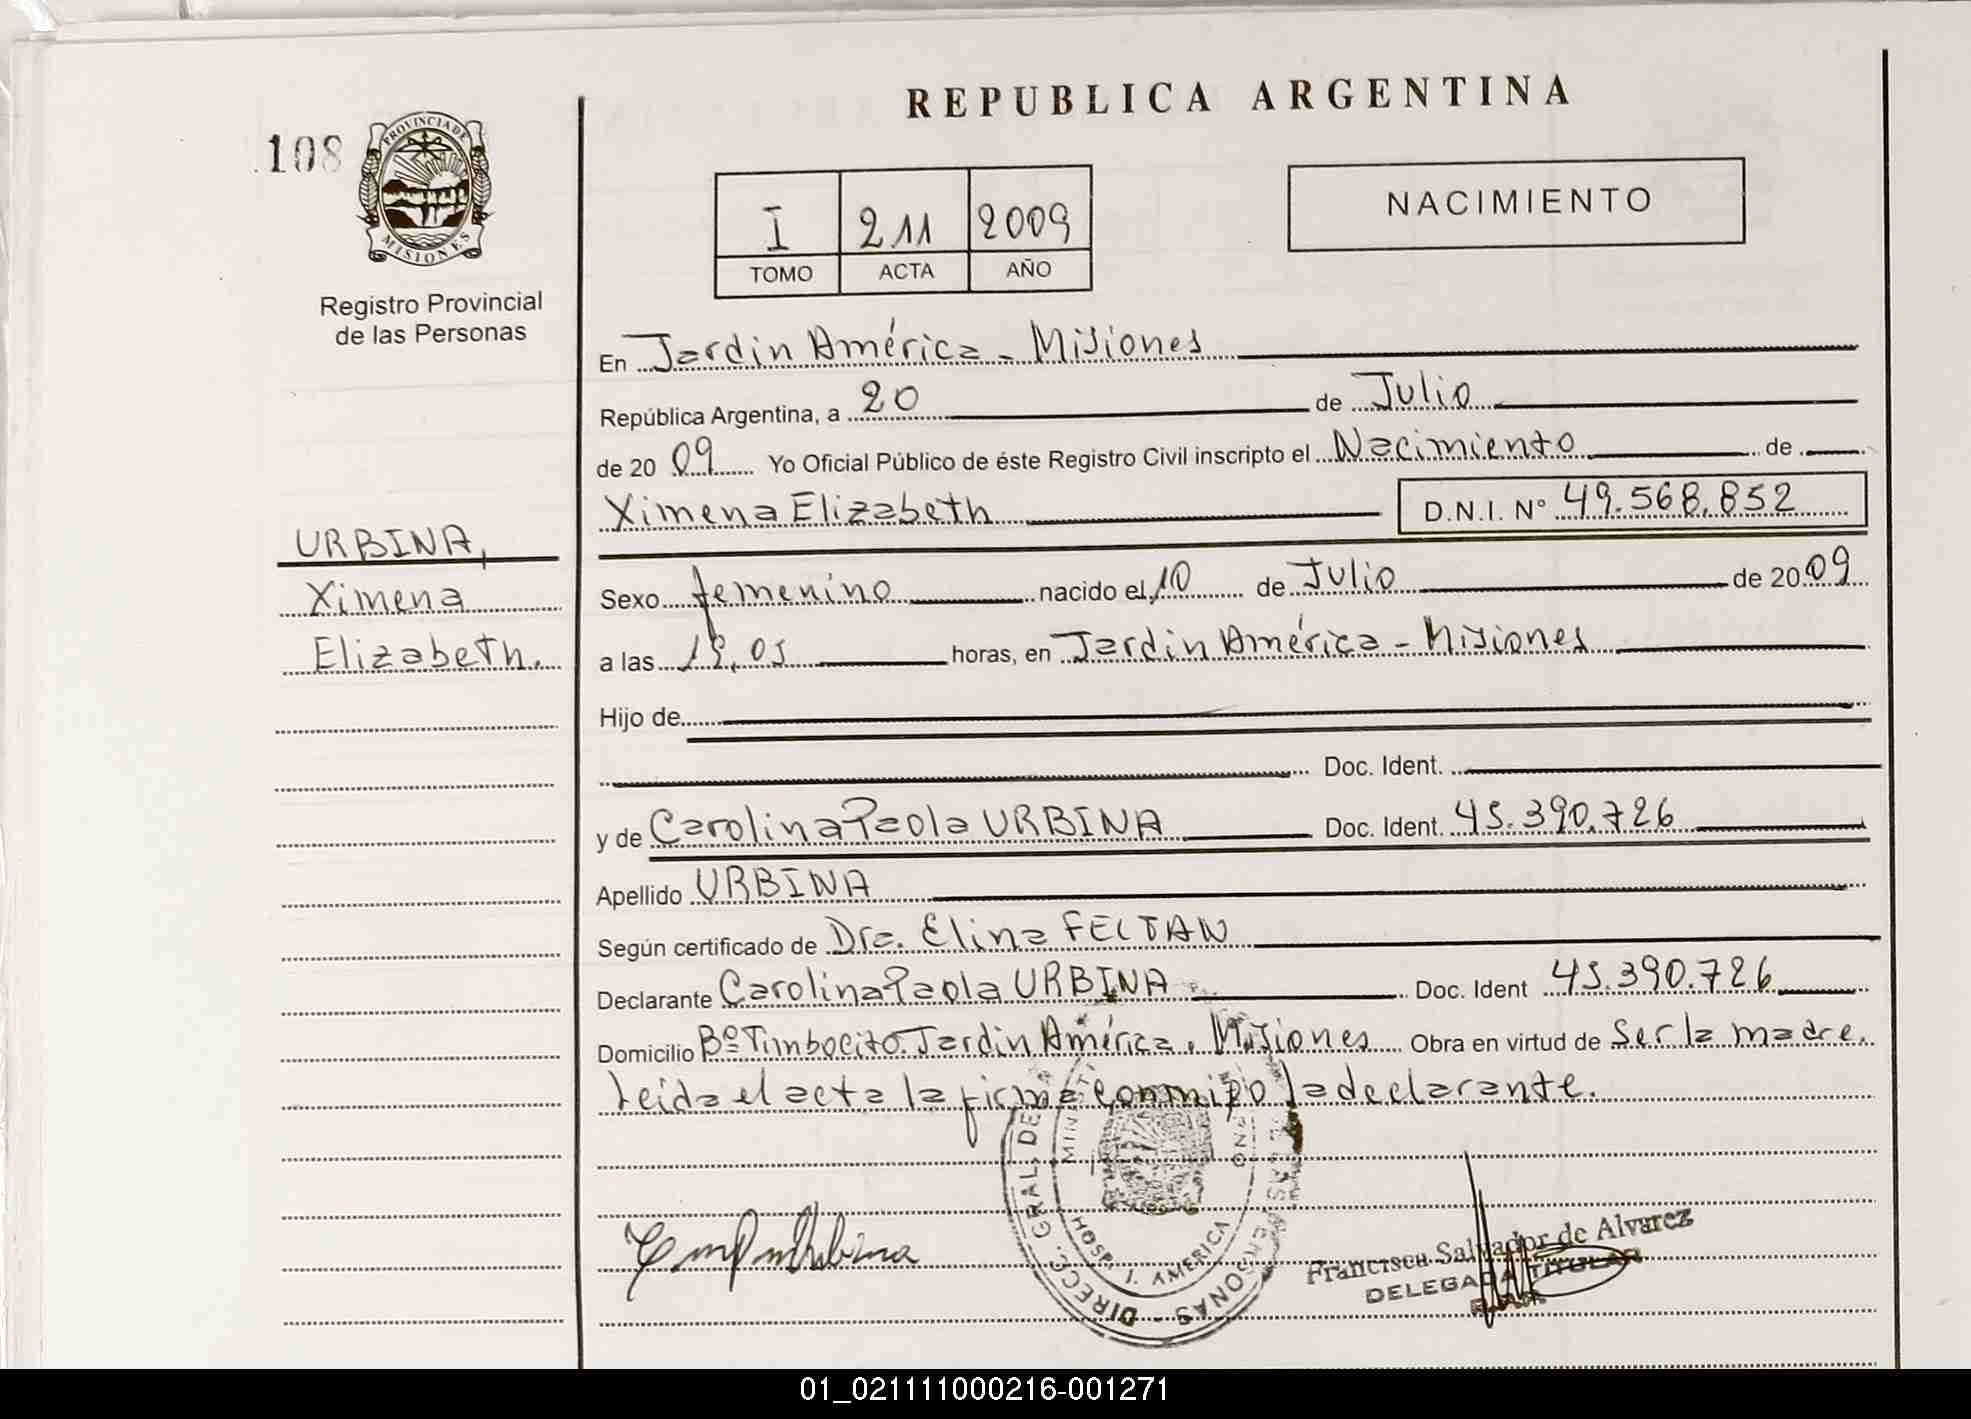 REPUBLICA ARGENTINA
108
PROVINCIA DE MISIONES
Registro Provincial
de las Personas
I 211 2009
TOMO ACTA AÑO
NACIMIENTO
URBINA,
Ximena
Elizabeth.
En Jardin América - Misiones
República Argentina, a 20 de Julio
de 2009 Yo Oficial Público de éste Registro Civil inscripto el Nacimiento de
Ximena Elizabeth D.N.I. Nº 49.568.852
Sexo femenino nacido el 10 de Julio de 2009
a las horas, en Jardin América - Misiones
Hijo de
Doc. Ident.
y de Carolina Paola URBINA Doc. Ident. 45.390.726
Apellido URBINA
Según certificado de Dra. Elina FELTAN
Declarante Carolina Paola URBINA Doc. Ident 45.390.726
Domicilio Bº Timbocito. Jardin América. Misiones Obra en virtud de Ser la madre.
Leida el acta la firma conmigo la declarante.
DIRECC. GRAL. DE
HOSP. J. AMERICA
Francisca Salvador de Alvarez
DELEGADA TITULAR
01_021111000216-001271